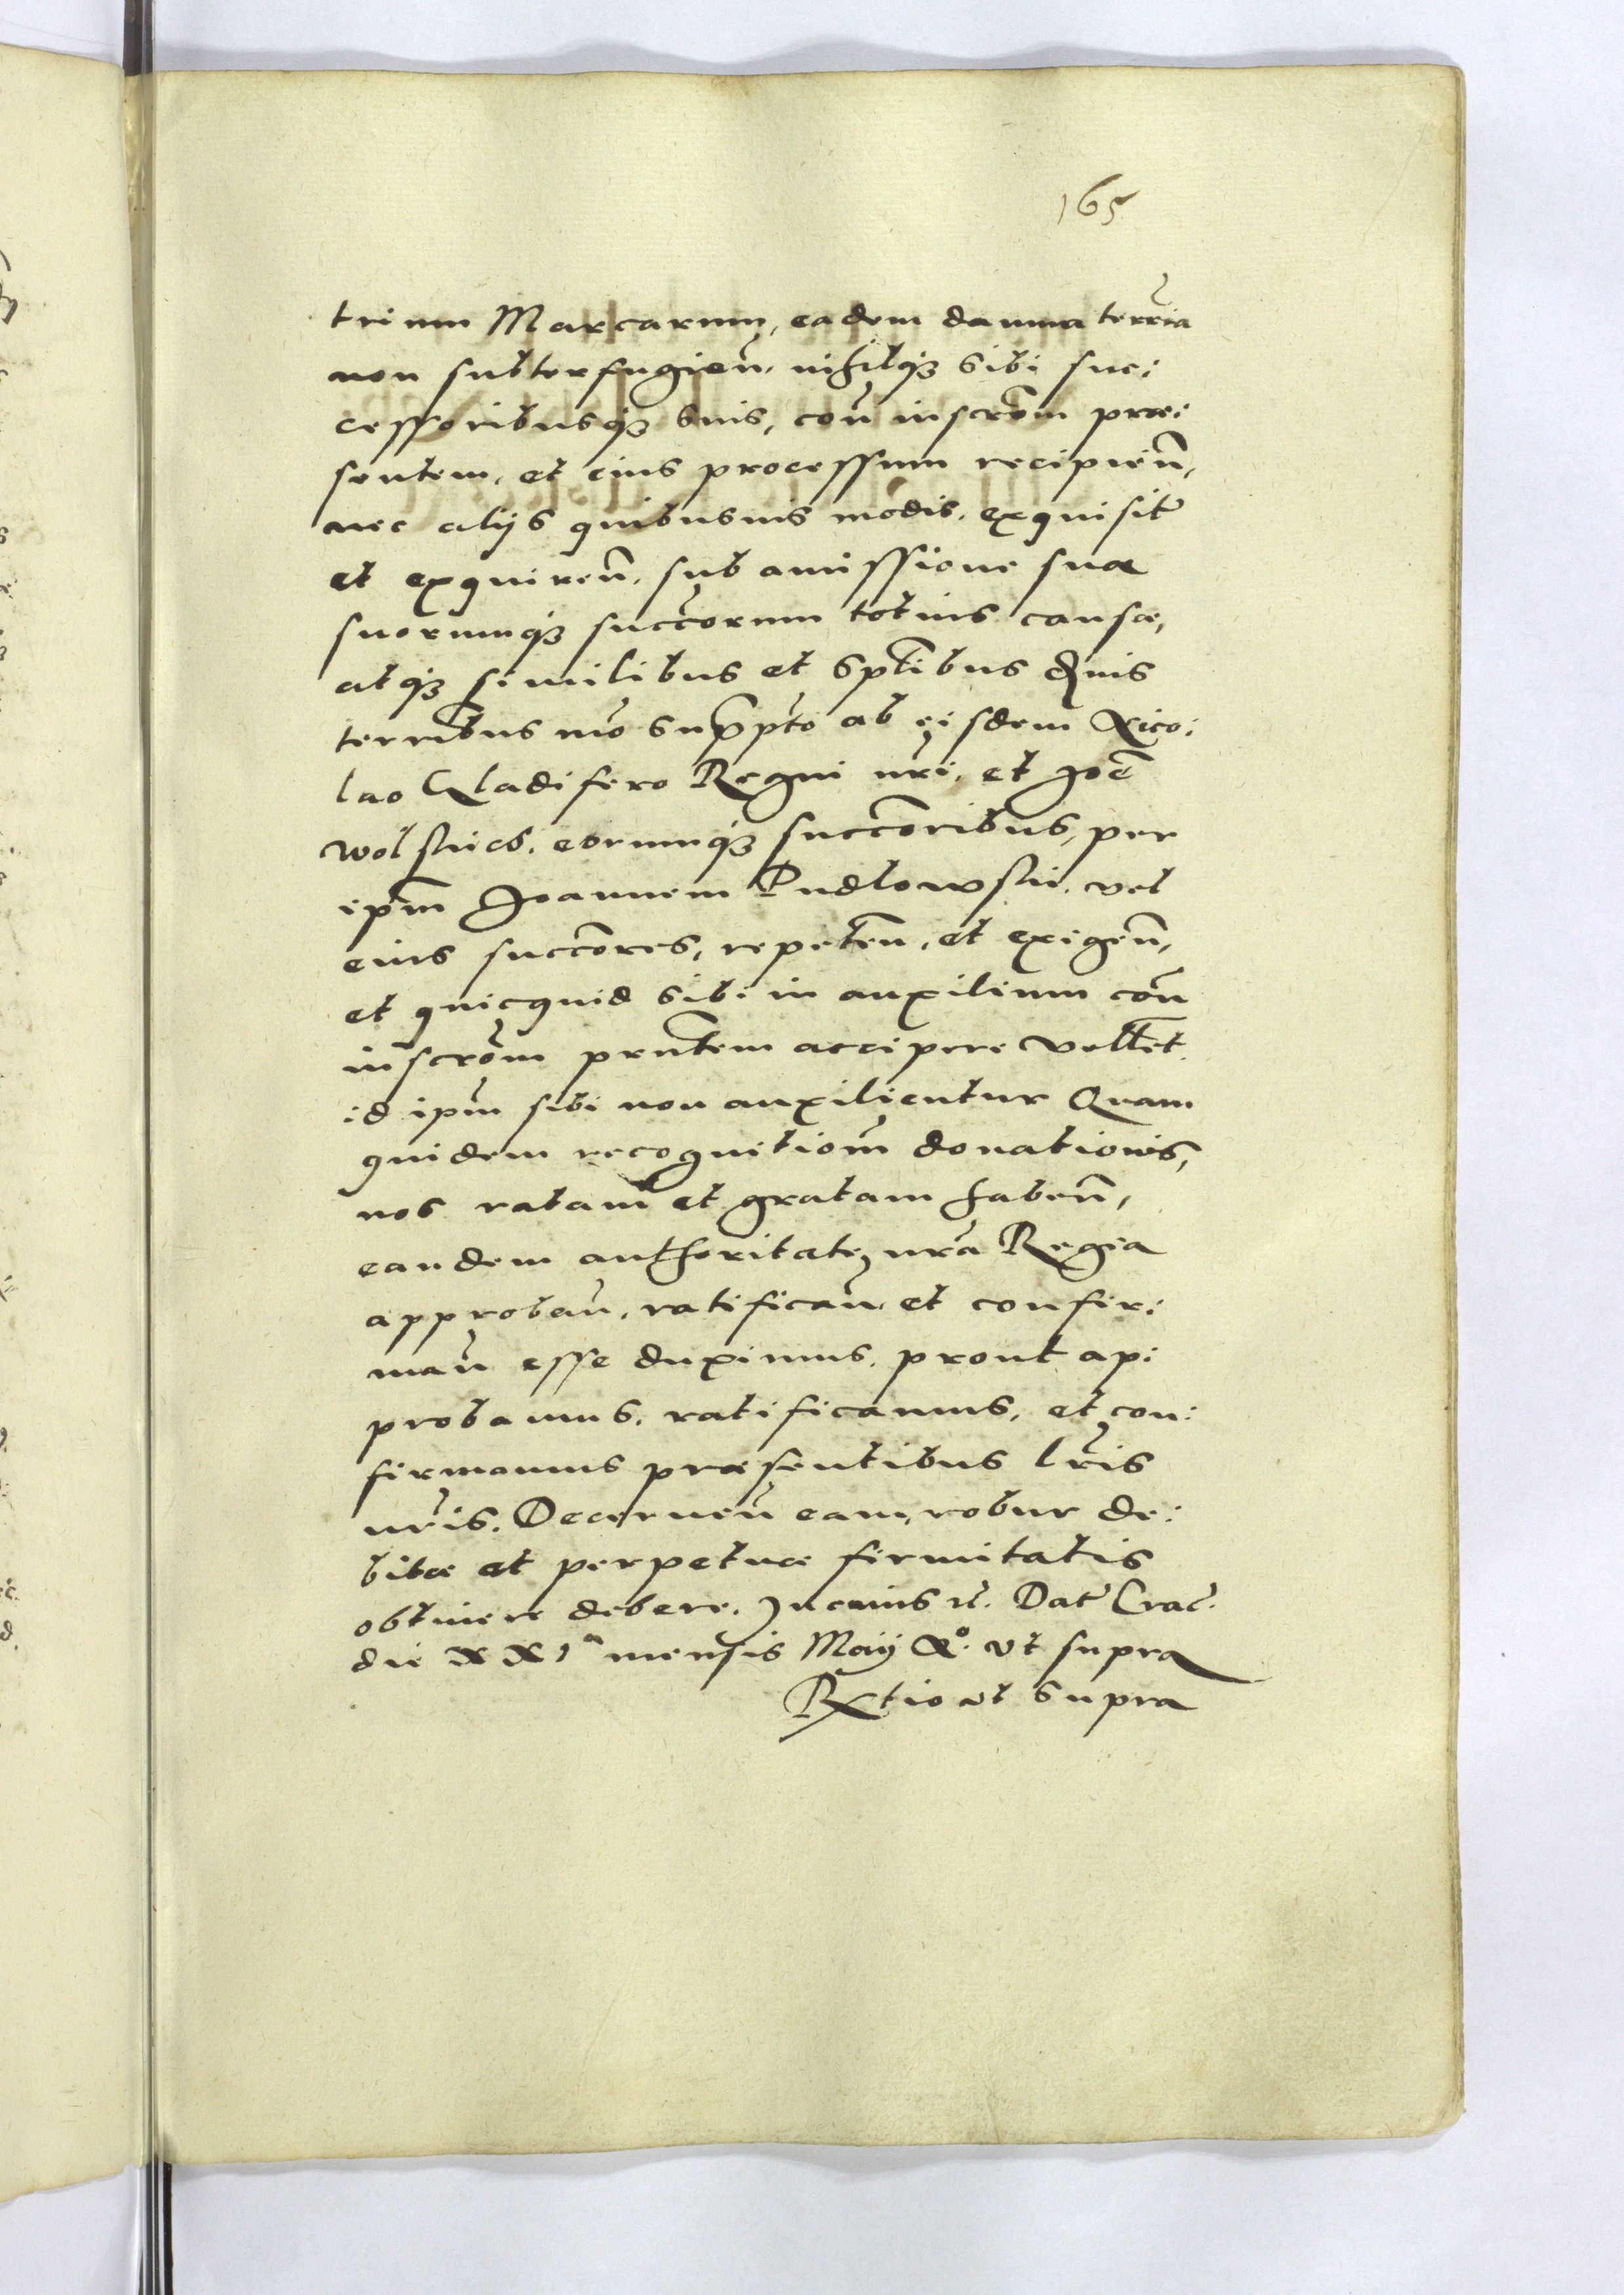 165
trium Marcarum, eadem damna terr̃ia
non subterfugieñ. nihilq₃ sibi suc:
cessoribusq₃ suis, coñ inscrõm præ:
sentem, et eius processum recipieñ,
nec alijs quibusuis modis. exquisit̃
et exquireñ. sub amissione suæ
suorumq₃ succ̃orum totius causæ,
atq₃ similibus et sp̃tibus
terr̃ibus supp̃to ab eisdem Nico:
lao Gladifero Regni nr̃i, et Joẽ
Wolskies. eorumq₃ succ̃oribus, per
ip̃m Joannem Pudlowski. vel
eius succ̃ores, repeteñ, et exigeñ,
et quicquid sibi in auxilium coñ
inscrõm prñtem accipere vellet
id ip̃m sibi non auxilientur Quam
quidem recognitiom̃ donationis,
nos ratam et gratam habeñ,
eandem authoritate nr̃a Regia
approbañ, ratificañ et confir:
mañ esse duximus. prout ap:
probamus, ratificamus, et con:
firmamus præsentibus lr̃is
nr̃is. Decerneñ eam, robur de:
bitæ et perpetuæ firmitatis
obtinere debere. In cuius rt̃. Dat̃ Crac̃.
die XXIᵃ mensis Maij Aº. vt supra
Rtio vt supra